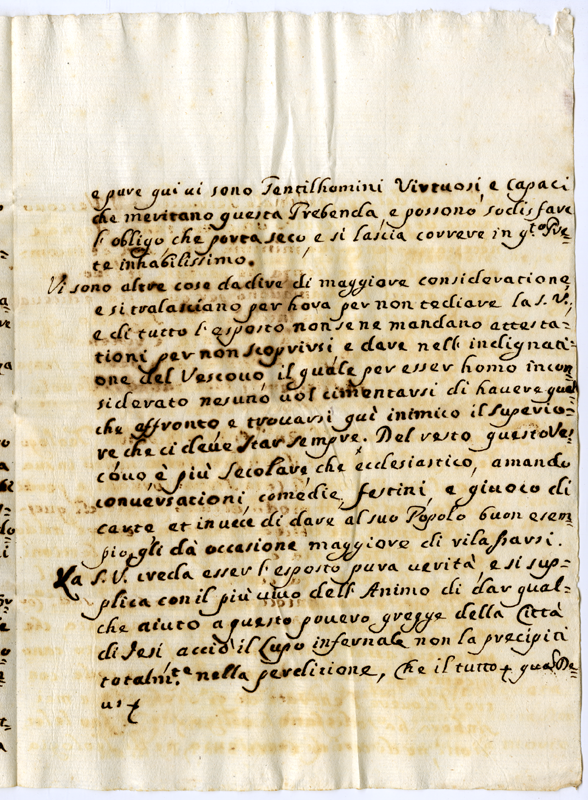 e pure qui ui sono Gentilhomini Virtuosi e Capaci
che meritano questa Prebenda e possono sodisfare
l'obligo che porta seco, e si lascia correre in q.to Pre=
te inhabilissimo.
Vi sono altre cose da dire di maggiore consideratione
e si tralasciano per hora per non tediare la S.V.,
e di tutto l'esposto non se ne mandano attesta=
tioni per non scoprirsi e dare nell'indignati=
one del Vescouo il quale per esser homo incon
siderato nesuno uol cimentarsi di hauere qual
che affronto e trouarsi quì inimico il superio=
re che ci deue star sempre. Del resto questo Ve=
couo è più secolare che ecclesiastico, amando
conuersationi comedie, festini, e giuoco di
carte et inuece di dare al suo Popolo buon esem
pio, gli dà occasione maggiore di rilassarsi.
La S.V. creda esser l'esposto pura uerità e si sup=
plica con il più uiuo dell'Animo di dar qual=
che aiuto a questo pouero gregge della Città
di Jesi acciò il Lupo infernale non la precipiti
totalm.te nella perditione, Che il tutto